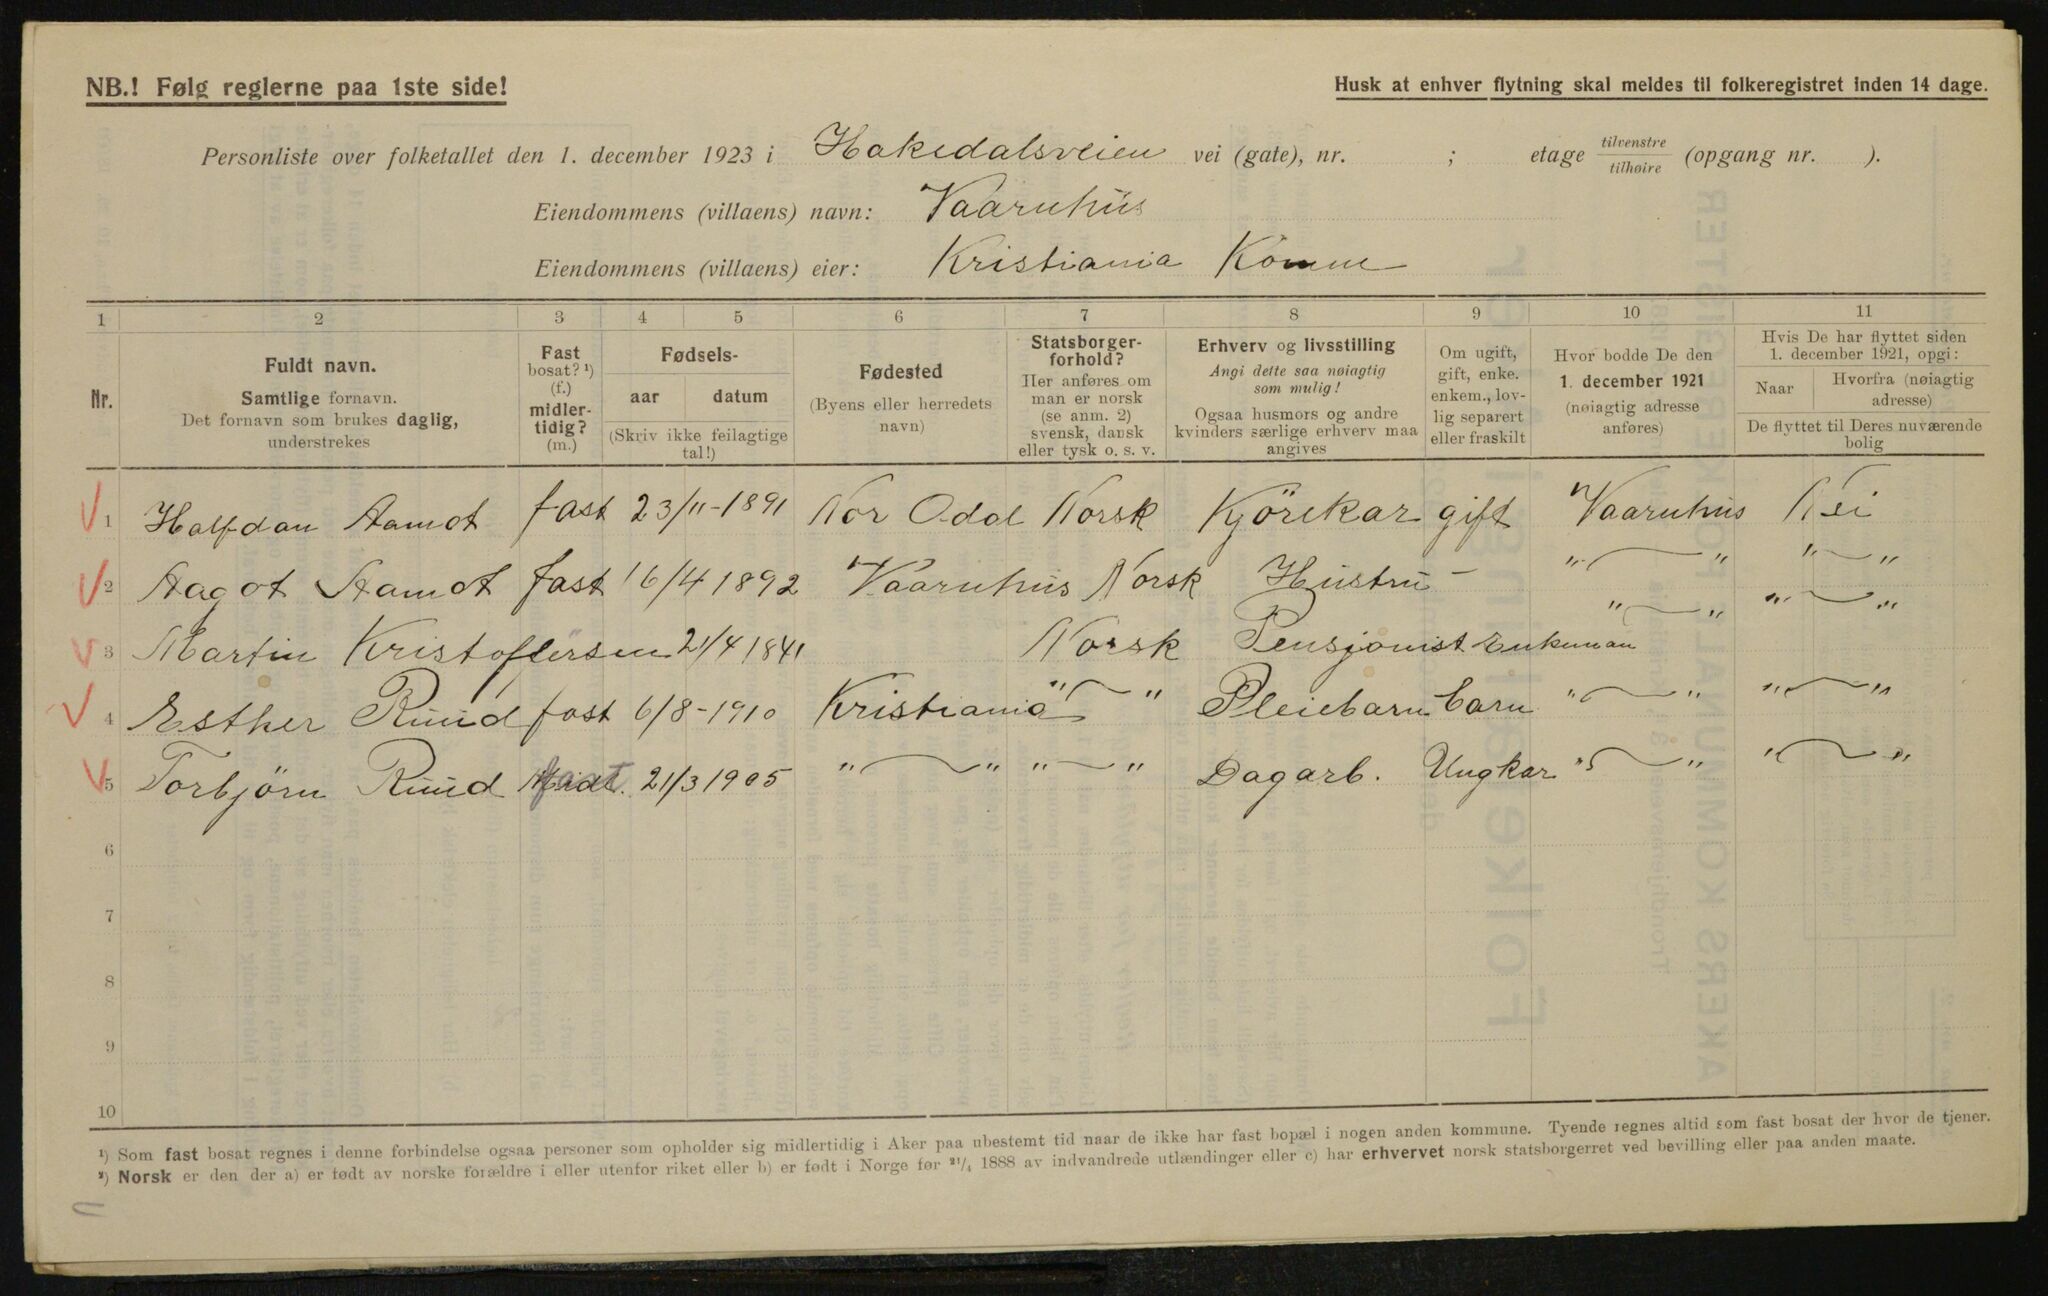 NB.! Følg reglerne paa 1ste side!
Husk at enhver flytning skal meldes til folkeregistret inden 14 dage.
Personliste over folketallet den 1. december 1923 i Hakedalsveien vei (gate), nr. ; etage tilvenstre tilhøire (opgang nr. ).
Eiendommens (villaens) navn: Vaaruhus
Eiendommens (villaens) eier: Kristiania Komm
1 2 3 4 5 6 7 8 9 10 11
Nr.
Fuldt navn.
Samtlige fornavn.
Det fornavn som brukes daglig,
understrekes
Fast
bosat? ¹)
(f.)
midler-
tidig?
(m.)
Fødsels-
aar datum
(Skriv ikke feilagtige
tal!)
Fødested
(Byens eller herredets
navn)
Statsborger-
forhold?
Her anføres om
man er norsk
(se anm. 2)
svensk, dansk
eller tysk o. s. v.
Erhverv og livsstilling
Angi dette saa nøiagtig
som mulig!
Ogsaa husmors og andre
kvinders særlige erhverv maa
angives
Om ugift,
gift, enke.
enkem., lov-
lig separert
eller fraskilt
Hvor bodde De den
1. december 1921
(nøiagtig adresse
anføres)
Hvis De har flyttet siden
1. december 1921, opgi:
Naar Hvorfra (nøiagtig
adresse)
De flyttet til Deres nuværende
bolig
1 Halfdan Aamot fast 23/11-1891 Nor Odal Norsk Kjörekar gift Vaaruhus Nei
2 Aagot Aamot fast 16/4 1892 Vaaruhus Norsk Hustru – " — " " — "
3 Martin Kristoffersen 21/4 1841 Norsk Pensjonist Enkeman " — " " — "
4 Esther Ruud fast 6/8-1910 Kristiania " — " Pleiebarn barn " — " " — "
5 Torbjörn Ruud Midl. fast 21/3 1905 " — " " — " Dagarb. Ungkar " — " " — "
6
7
8
9
10
¹) Som fast bosat regnes i denne forbindelse ogsaa personer som opholder sig midlertidig i Aker paa ubestemt tid naar de ikke har fast bopæl i nogen anden kommune. Tyende regnes altid som fast bosat der hvor de tjener.
²) Norsk er den der a) er født av norske forældre i eller utenfor riket eller b) er født i Norge før ²¹/₄ 1888 av indvandrede utlændinger eller c) har erhvervet norsk statsborgerret ved bevilling eller paa anden maate.